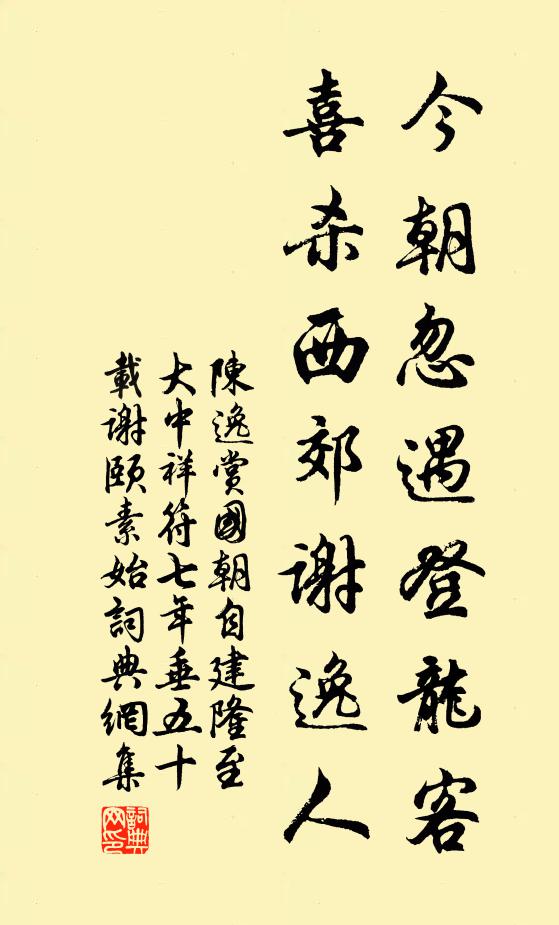 今朝忽遇登龍客
喜杀西郊谢逸人
陳逸賞國朝自建隆至
大中祥符七年垂五十
載谢颐素始詞典網集
詞典网印